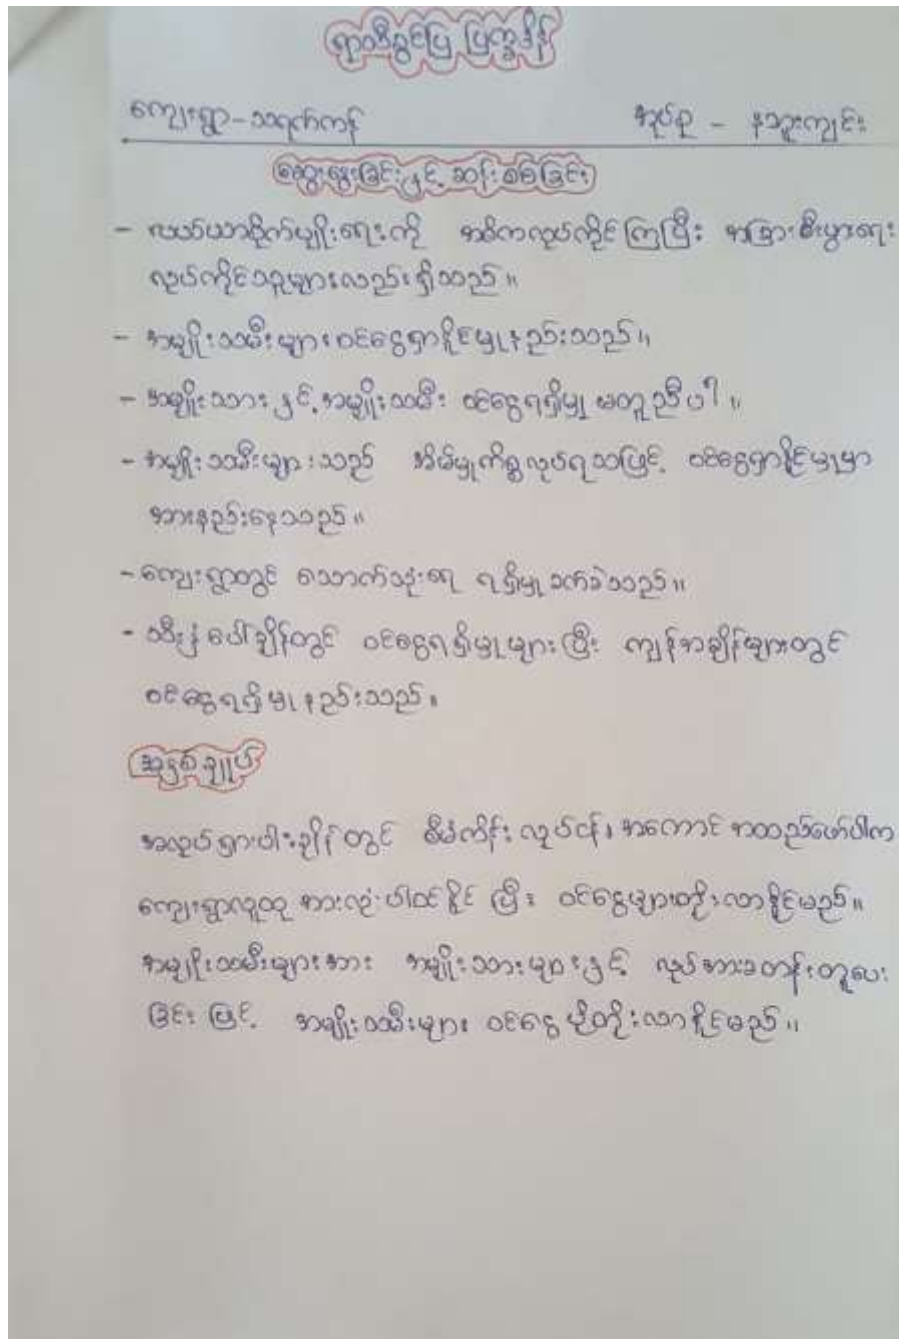 ရာသီခွင်ပြ ပြက္ခဒိန်
ကျေးရွာ - သရက်ကန် အုပ်စု - နဘူးကျင်း
ဆွေးနွေးခြင်းနှင့် ဆန်းစစ်ခြင်း
- လယ်ယာစိုက်ပျိုးရေးကို အဓိကလုပ်ကိုင်ကြပြီး အခြားစီးပွားရေး
လုပ်ကိုင်သူများလည်းရှိသည်။
- အမျိုးသမီးများဝင်ငွေရှာနိုင်မှုနည်းသည်။
- အမျိုးသားနှင့်အမျိုးသမီး ဝင်ငွေရရှိမှု မတူညီပါ။
- အမျိုးသမီးများသည် အိမ်မှုကိစ္စလုပ်ရသဖြင့် ဝင်ငွေရှာနိုင်မှုမှာ
အားနည်းနေသည်။
- ကျေးရွာတွင် သောက်သုံးရေ ရရှိမှုခက်ခဲသည်။
- သီးနှံပေါ်ချိန်တွင် ဝင်ငွေရရှိမှုများပြီး ကျန်အချိန်များတွင်
ဝင်ငွေရရှိမှုနည်းသည်။
အနှစ်ချုပ်
အလုပ်ရှားပါးချိန်တွင် စီမံကိန်းလုပ်ငန်းအကောင်အထည်ဖော်ပါက
ကျေးရွာလူထုအားလုံးပါဝင်နိုင်ပြီး ဝင်ငွေများတိုးလာနိုင်မည်။
အမျိုးသမီးများအား အမျိုးသားများနှင့် လုပ်အားခတန်းတူပေး
ခြင်းဖြင့် အမျိုးသမီးများ ဝင်ငွေပိုတိုးလာနိုင်မည်။